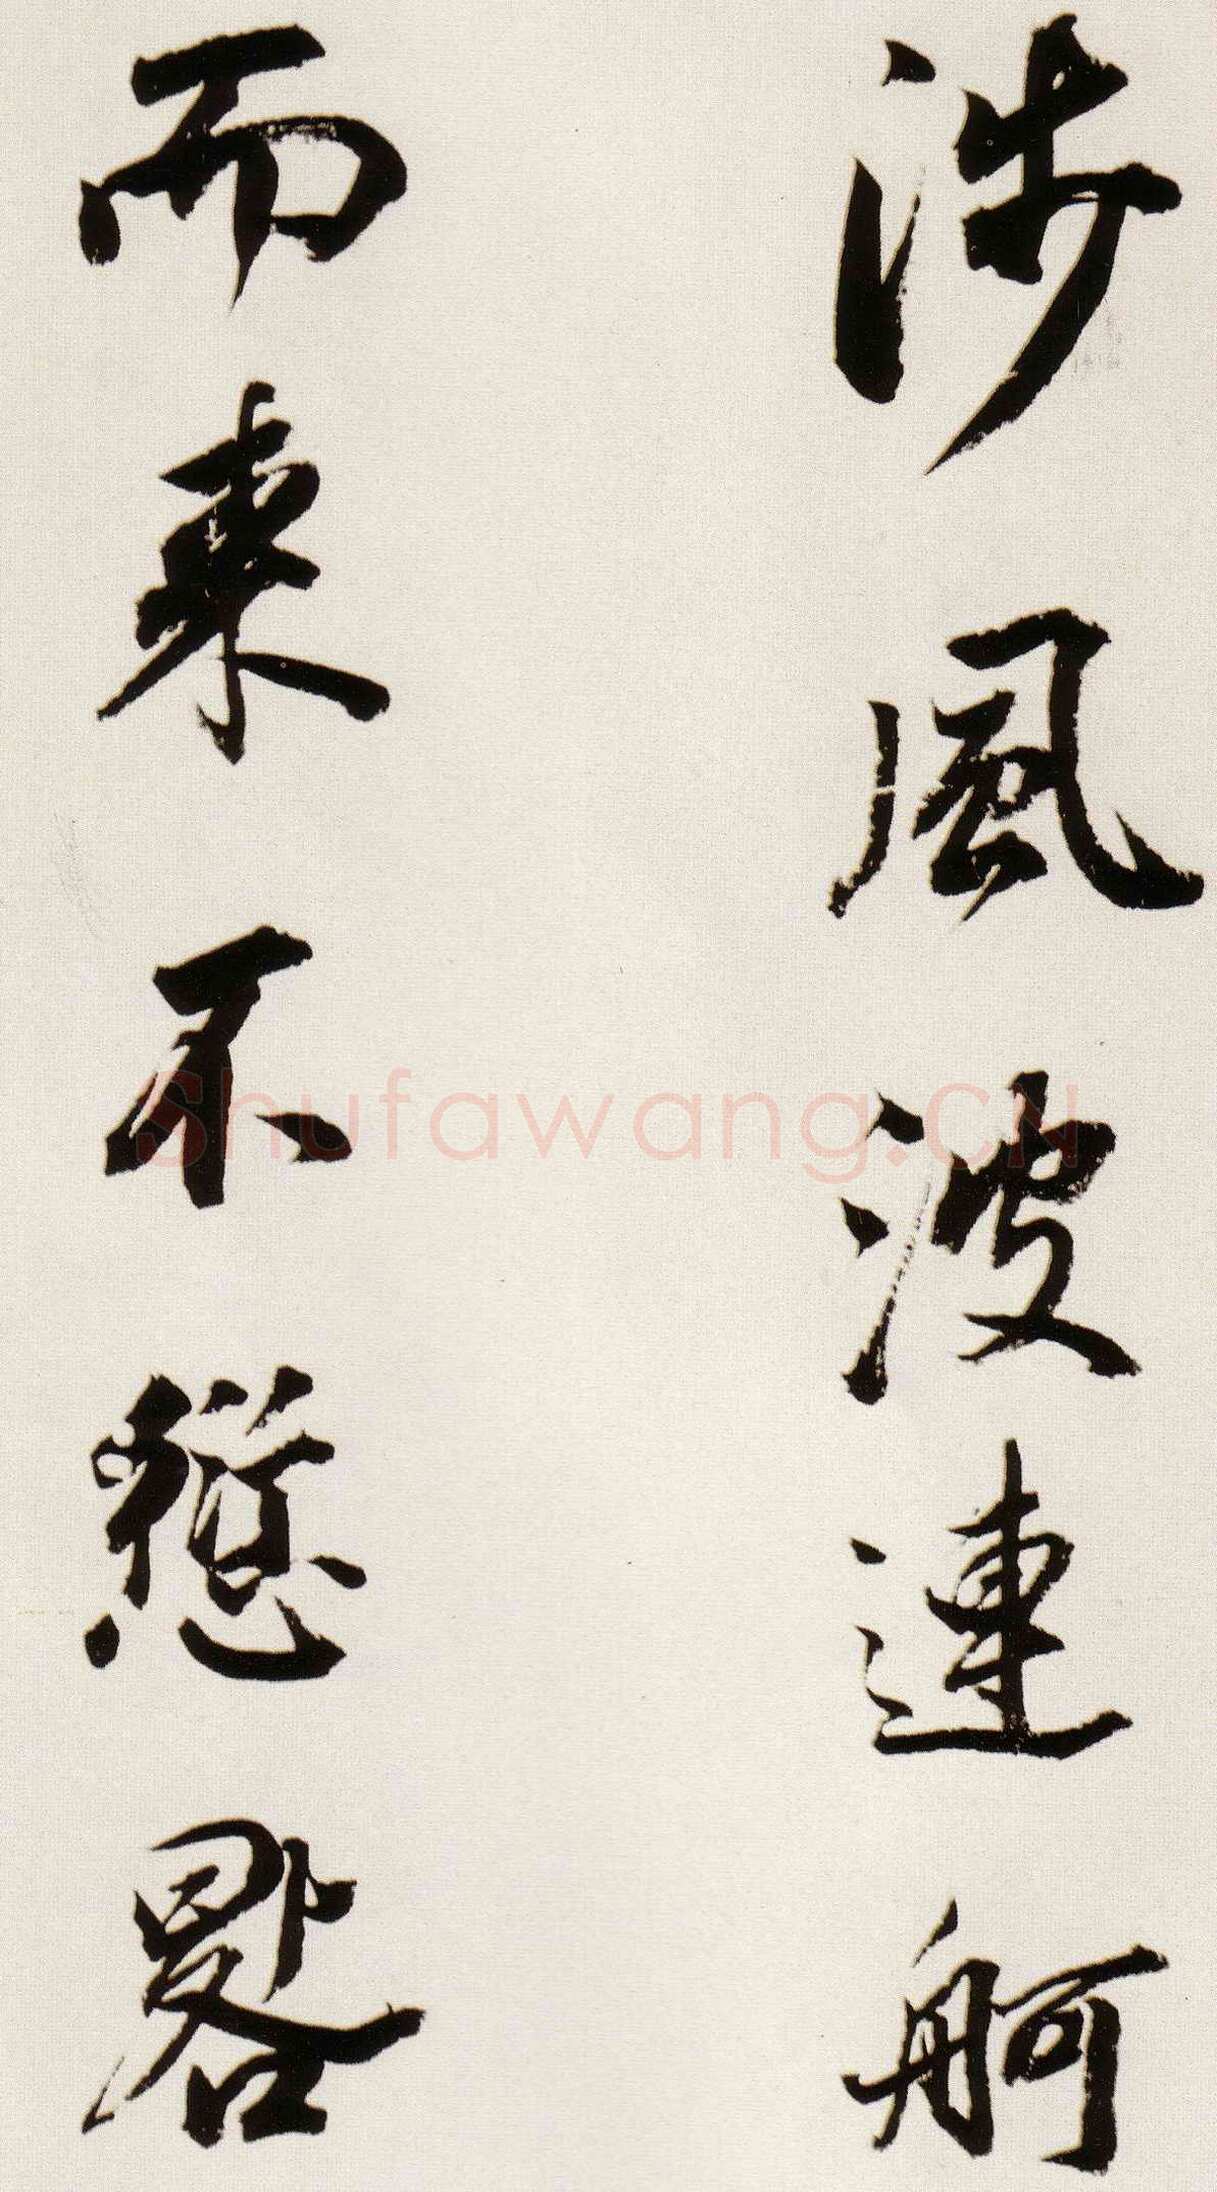 涉風波連舸
而來不愆晷
Shufawang.CN